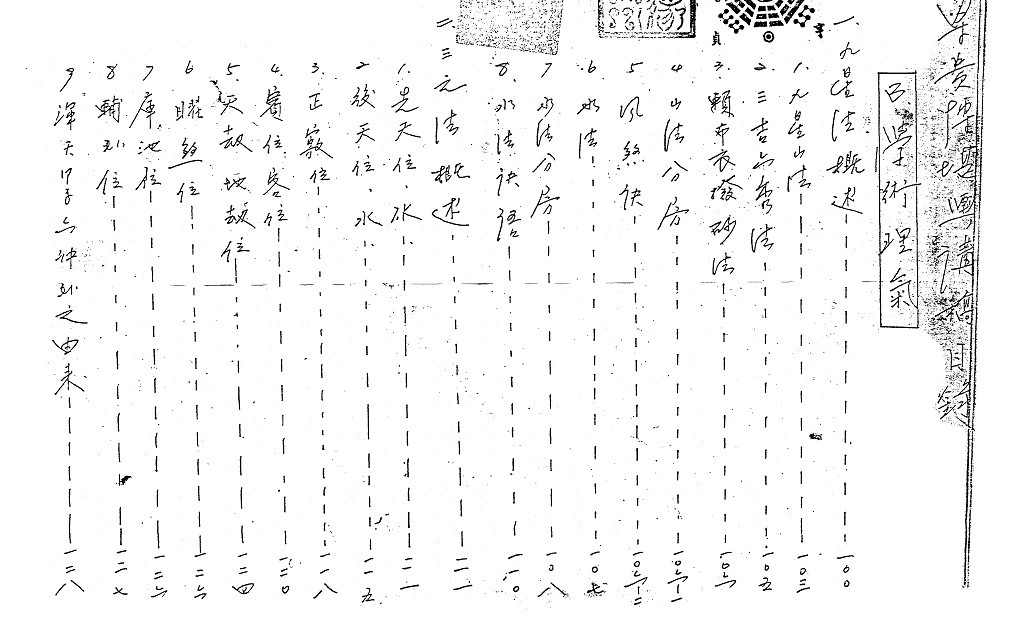 學貴陞堪輿講稿目錄
巳學術理氣
一、九星法概述 一〇〇
1. 九星山法 一〇三
2. 三吉六秀法 一〇五
3. 賴布衣撥砂法 一〇六
4. 山法分房 一〇六-1
5. 風煞訣 一〇六-2
6. 水法 一〇七
7 水法分房 一〇八
8. 水法訣語 一一〇
二、三元法概述 一一一
1. 先天位、水 一二一
2 後天位、水 一一五
3. 正竅位 一一八
4. 賓位客位 一二〇
5. 天劫地劫位 一二四
6 曜煞位 一二六
7 庫池位 一二六
8 輔卦位 一二七
9 渾天甲子六神卦之由来 一二八
貞